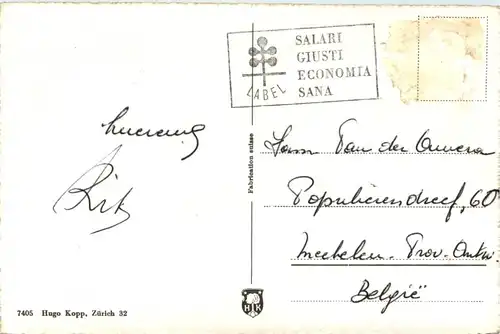 SALARI
GIUSTI
ECONOMIA
SANA
LABEL
Rit
Fabrication suisse
Fam Van der
Populierendreef, 60
Mechelen - Prov. Antw.
België
HK
7405 Hugo Kopp, Zürich 32